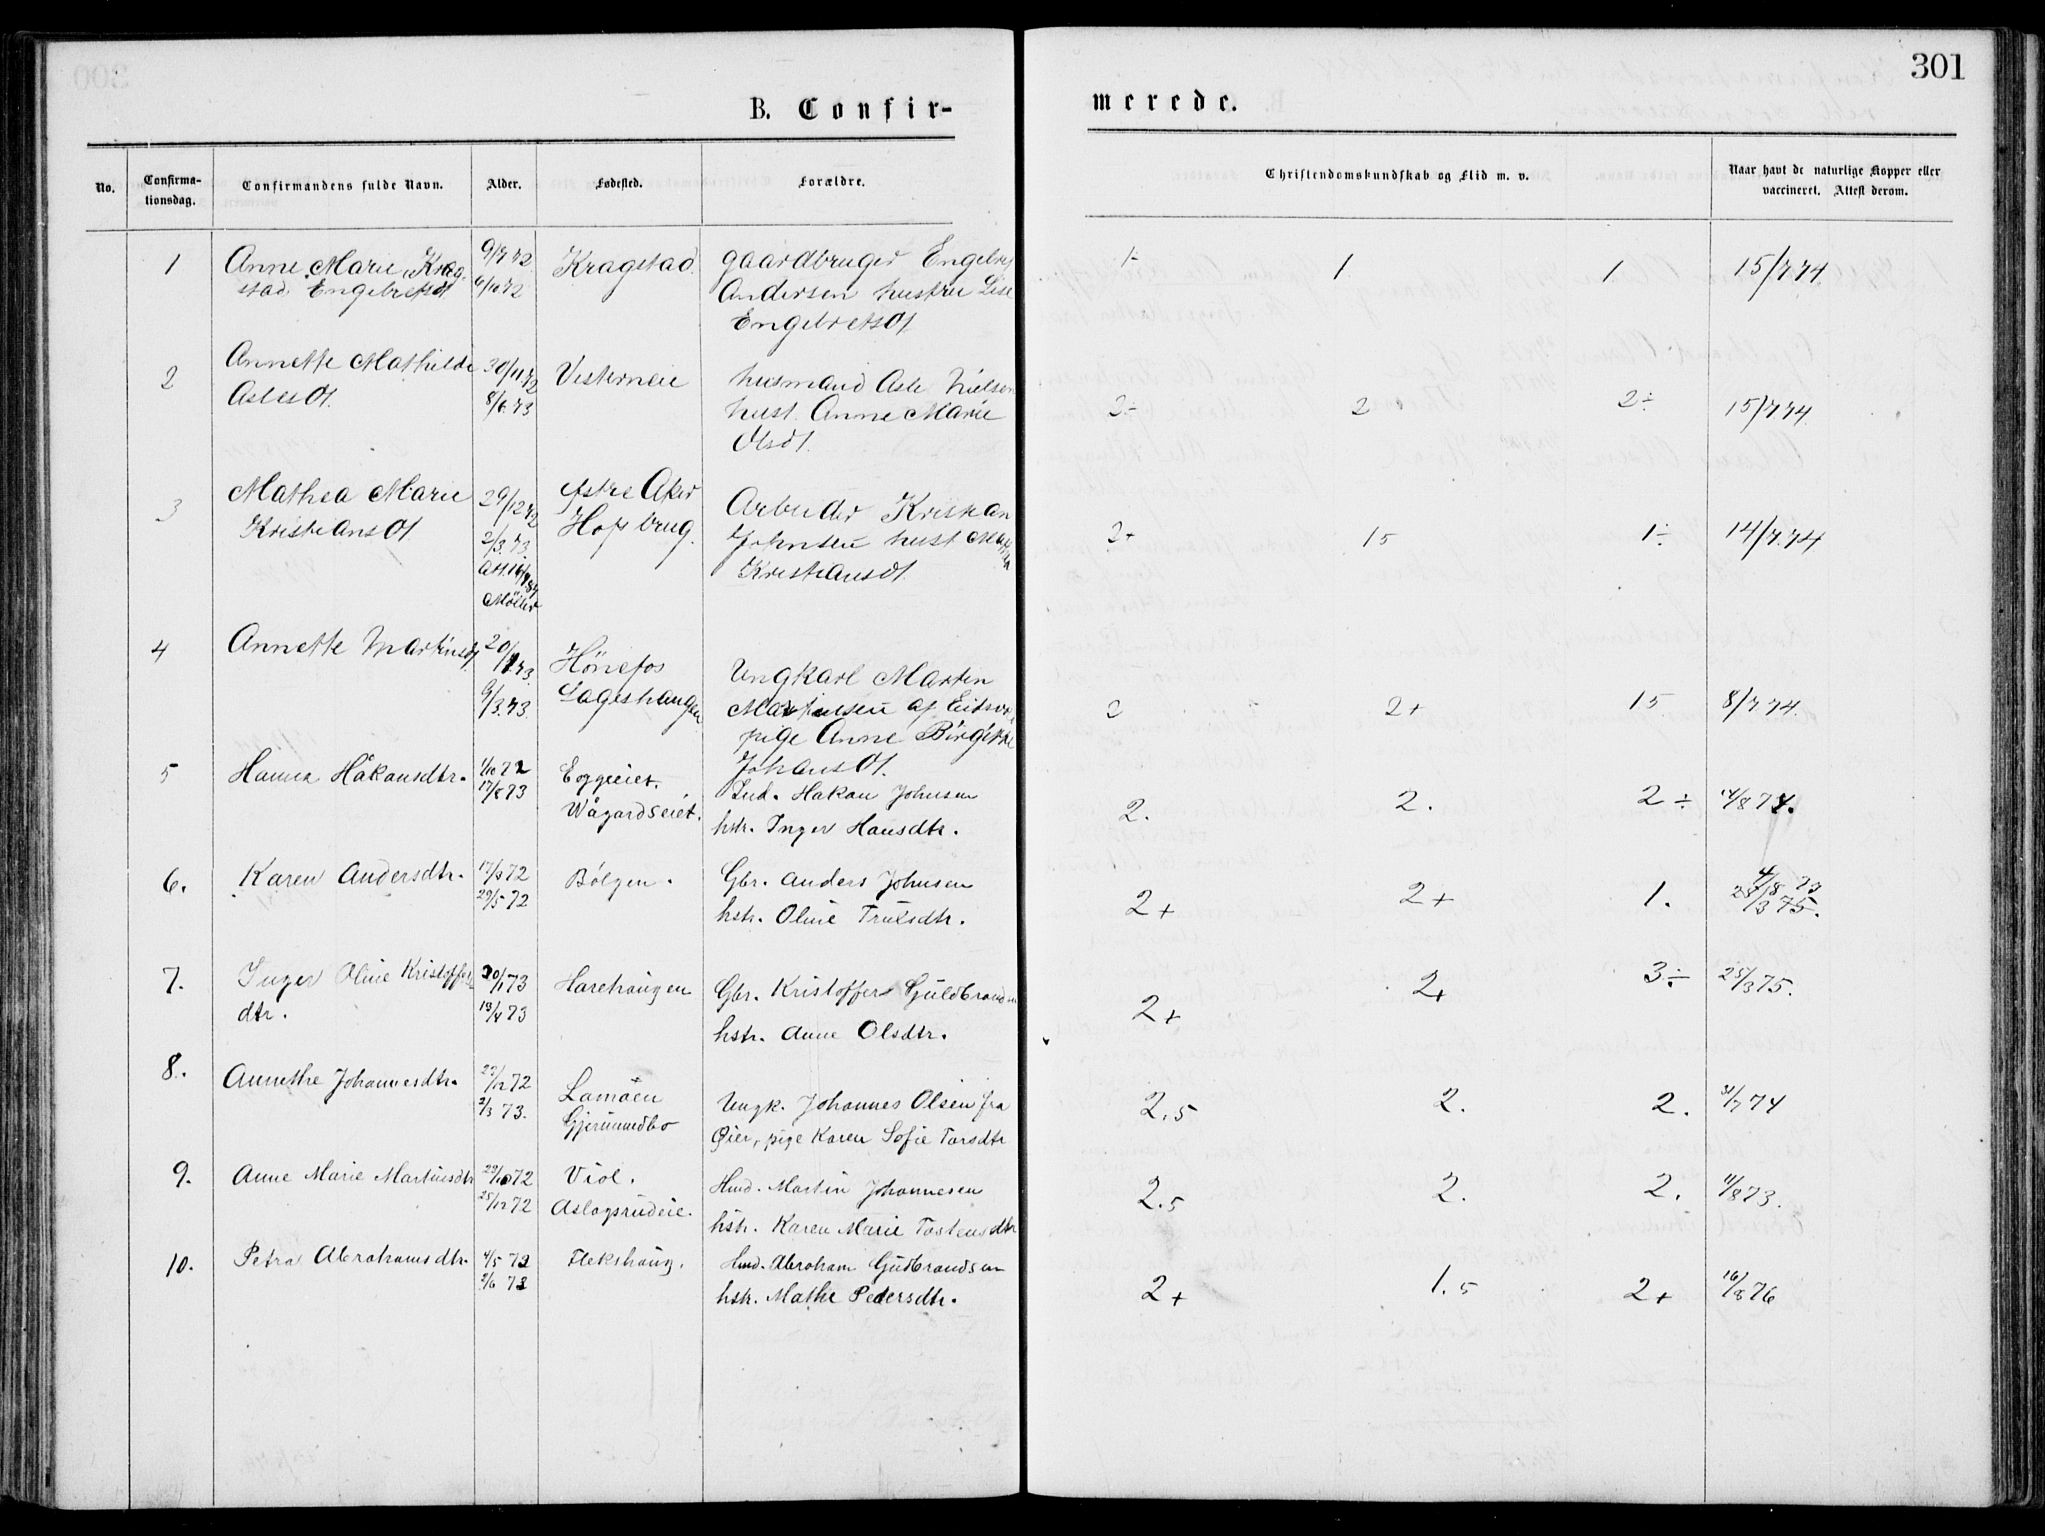 301
B. Confir-
merede.
No.
Confirma-
tionsdag.
Confirmandens fulde Navn.
Alder.
Fødested.
Forældre.
Christendomskundskab og Flid m. v.
Naar havt de naturlige Kopper eller
vaccineret. Attest derom.
1 Anne Marie Krag- 9/7 72 Kragstad gaardbruger Engebret 1- 1 1. 15/7.74.
stad Engebretsdt 6/10 72 Andersen hustru Lise
Engebretsdt
2 Annette Mathilde 30/11 72 Vesterneie husmand Asle Nielsen 2÷ 2 2÷ 15/7.74.
Aslesdt. 8/6.73 hust. Anne Marie
Olsdt.
3 Mathea Marie 29/12 72 Østre Aker Arbeider Kristian 2+ 15 1÷ 14/7.74
Kristiansdt 2/3.73 Hofs brug. Johnsen hust
Att. 16/9 87 Kristiansdt.
Møller
4 Annette Martinsdt. 20/1 73. Hönefos Ungkarl Martin 2 2+ 15 8/7 74.
9/3.73. Lageshaugen Martinsen af Eidsvo
pige Anne Birgitte
Johansdt.
5 Hanna Håkansdtr. 1/10 72 Eggeeiet. Ind. Hakan Johnsen 2. 2. 2÷ 14/8 74.
17/8 73 Wågardseiet. hstr. Inger Hansdtr.
6. Karen Andersdtr. 17/3 72 Bölgen. Gbr. Anders Johnsen 2+ 2+ 1. 4/8 73
29/5 72 hstr. Oline Trulsdtr. 28/3 75.
7. Inger Oline Kristoffers 30/1 73 Harehaugen Gbr. Kristoffer Guldbrandsen 2+ 2+ 3÷ 25/3 75.
dtr. 13/4 73 hstr. Anne Olsdtr.
8. Annethe Johannesdtr. 23/12 72 Lamoen Ungk. Johannes Olsen fra 2.5 2. 2. 31/7 74
2/3 73. Gjermundbo Øier, pige Karen Sofie Torsdtr
9. Anne Marie Martinsdtr 29/10 72 Viol. Hmd. Martin Johannesen 2.5 2. 2. 11/8 73.
25/12 72 Aslagsrudeie. hstr. Karen Marie Tostensdtr
10. Petra Abrahamsdtr. 4/5 72 Flekshaug. Hmd. Abraham Gudbrandsen 2+ 1.5 2+ 16/8 76
2/6 72 hstr. Mathe Pedersdtr.